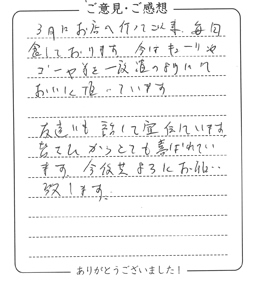 ご意見・ご感想
3月にお店へ行って以来、毎回
食しております。今はきゅーりや
ゴーヤを一夜漬のようにして
おいしく頂いています。
友達にも話して宣伝しています。
皆さんからとても喜ばれてい
ます。今後共よろしくお願い
致します。
ありがとうございました!